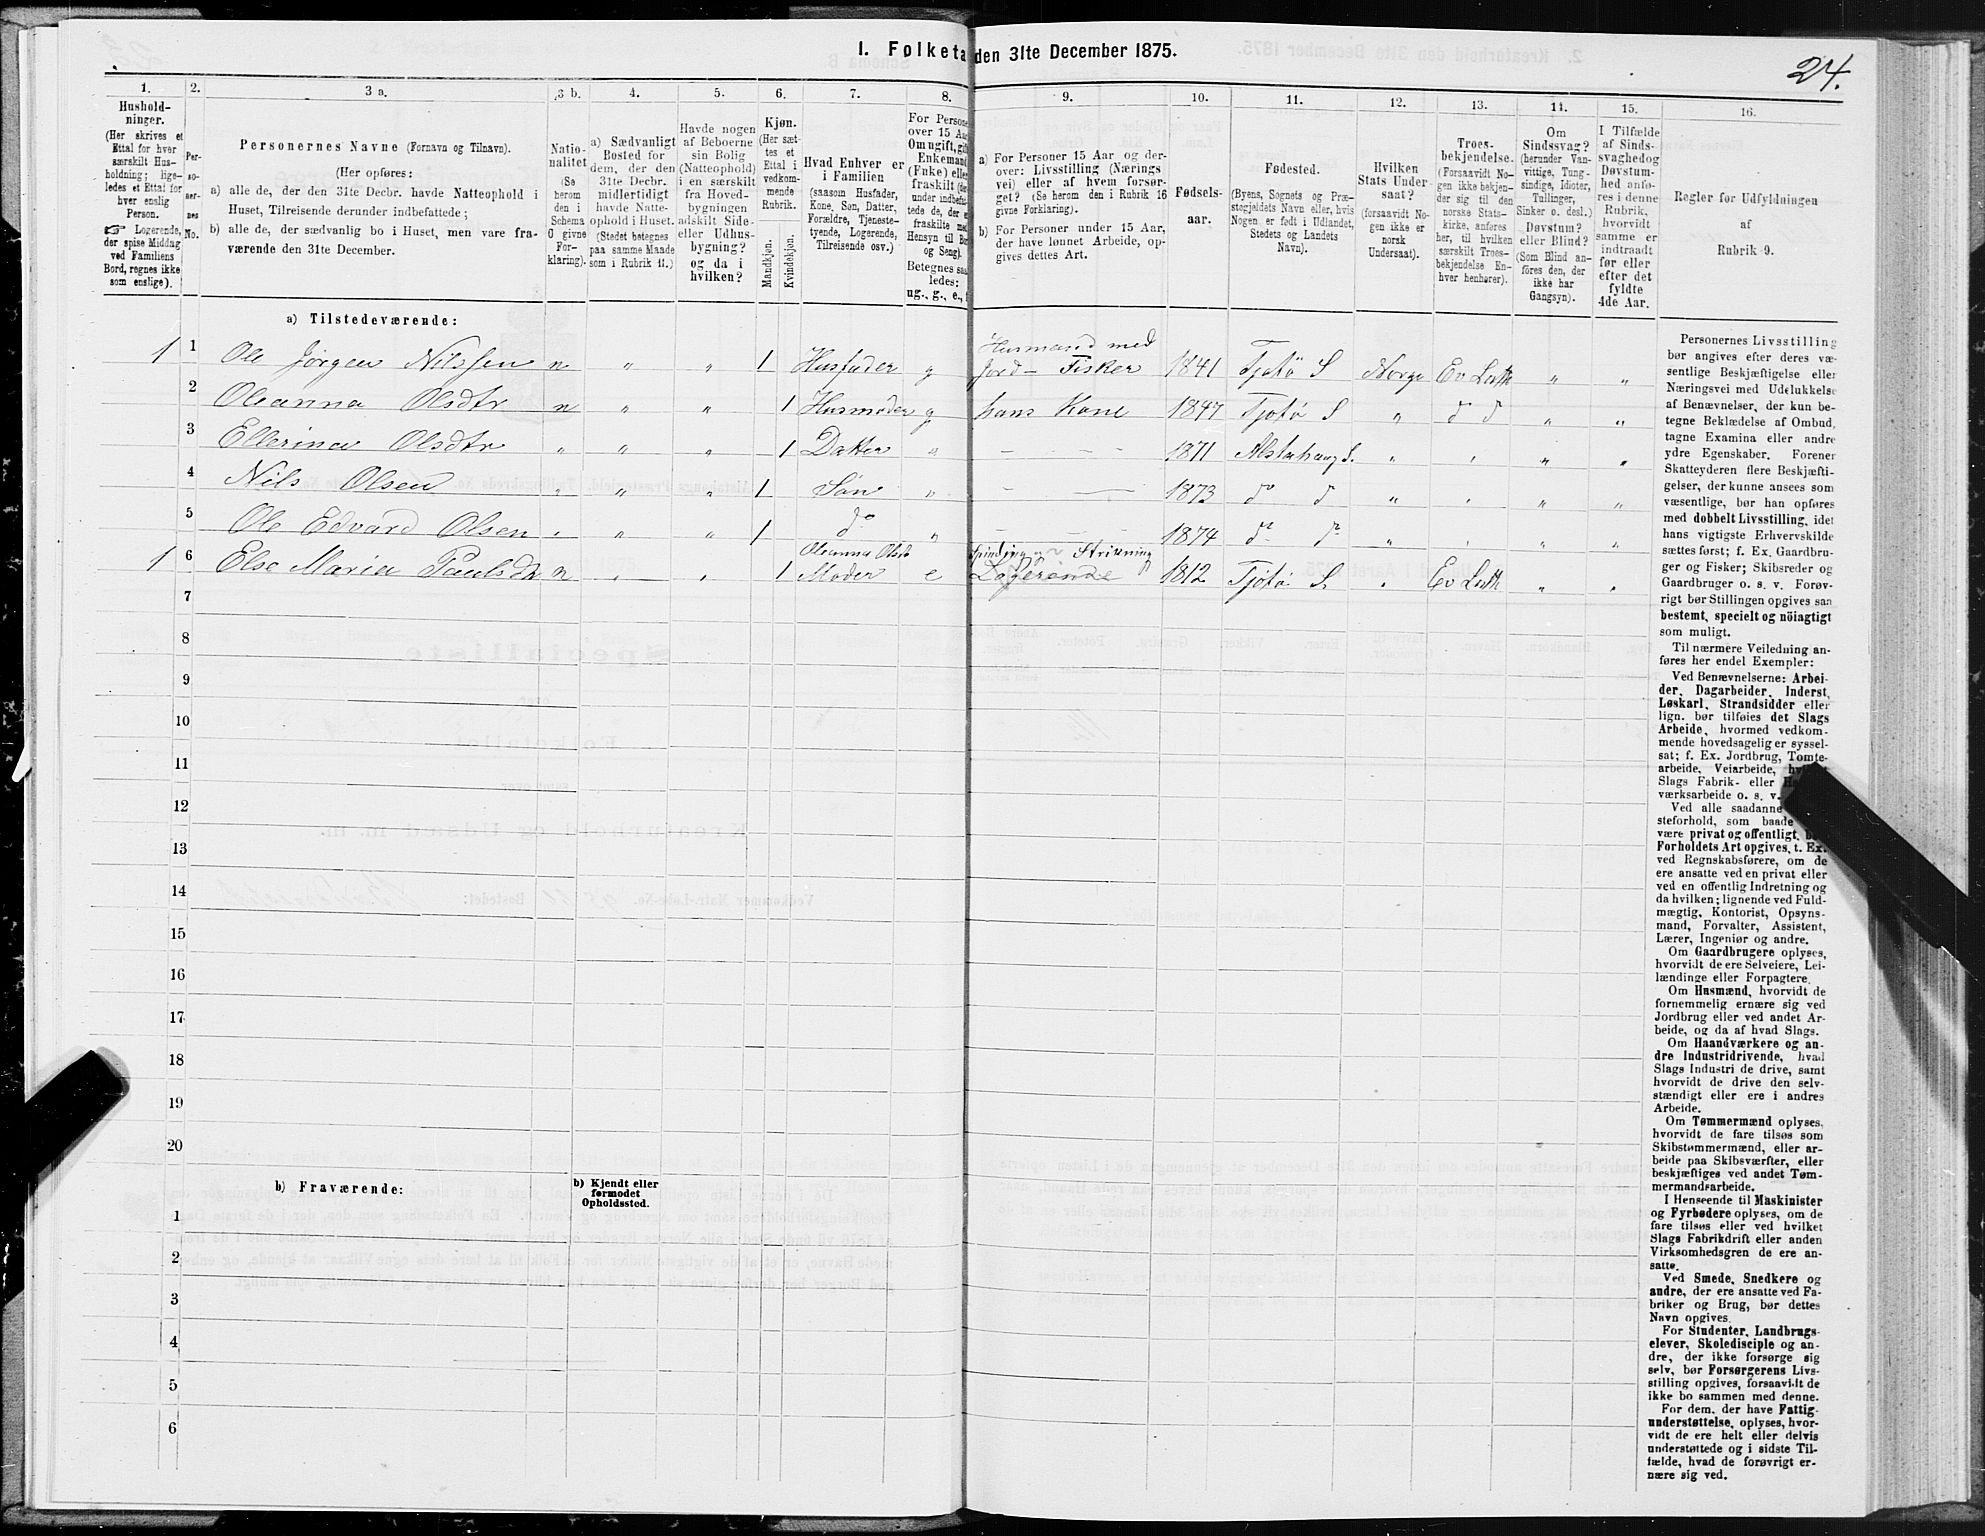 24.
I. Folketa den 31te December 1875.
1.
Hushold-
ninger.
(Her skrives et
Ettal for hver
særskilt Hus-
holdning; lige-
ledes et Ettal for
hver enslig
Person.
☞ Logerende,
der spise Middag
ved Familiens
Bord, regnes ikke
som enslige).
2.
Per-
so-
ner-
nes
No.
3 a.
Personernes Navne (Fornavn og Tilnavn).
(Her opføres:
a) alle de, der den 31te Decbr. havde Natteophold i
Huset, Tilreisende derunder indbefattede;
b) alle de, der sædvanlig bo i Huset, men vare fra-
værende den 31te December.
3 b.
Natio-
nalitet
(Se
herom
den i
Schema
C givne
For-
klaring).
4.
a) Sædvanligt
Bosted for
dem, der den
31te Decbr.
midlertidigt
havde Natte-
ophold i Huset.
(Stedet betegnes
paa samme Maade
som i Rubrik 11.)
5.
Havde nogen
af Beboerne
sin Bolig
(Natteophold)
i en særskilt
fra Hoved-
bygningen
adskilt Side-
eller Udhus-
bygning?
og da i
hvilken?
6.
Kjøn.
(Her sæt-
tes et
Ettal i
vedkom-
mende
Rubrik.
Mandkjøn.
Kvindekjøn.
7.
Hvad Enhver er
i Familien
(saasom Husfader,
Kone, Søn, Datter,
Forældre, Tjeneste-
tyende, Logerende,
Tilreisende osv.)
8.
For Persone
over 15 Aa
Om ugift, gif
Enkemand
(Enke) elle
fraskilt (de
under indbefat-
tede de, der e
fraskilte med
Hensyn til Bo
og Seng).
Betegnes saa
ledes:
ug., g., e.,
9.
a) For Personer 15 Aar og der-
over: Livsstilling (Nærings
vei) eller af hvem forsør-
get? (Se herom den i Rubrik 16
givne Forklaring).
b) For Personer under 15 Aar,
der have lønnet Arbeide, op-
gives dettes Art.
10.
Fødsels-
aar.
11.
Fødested.
(Byens, Sognets og Præ-
stegjeldets Navn eller, hvis
Nogen er født i Udlandet,
Stedets og Landets
Navn).
12.
Hvilken
Stats Under
saat?
(forsaavidt No-
gen ikke er
norsk
Undersaat).
13.
Troes-
bekjendelse.
(Forsaavidt No-
gen ikke bekjen-
der sig til den
norske Stats-
kirke, anføres
her, til hvilken
særskilt Troes-
bekjendelse En-
hver henhører).
14.
Om
Sindssvag?
(herunder Van-
vittige, Tung-
sindige, Idioter,
Tullinger,
Sinker o. desl.)
Døvstum?
eller Blind?
(Som Blind an-
føres den, der
ikke har
Gangsyn).
15.
I Tilfælde
af Sinds-
svaghed og
Døvstum-
hed anfø-
res i denne
Rubrik,
hvorvidt
samme er
indtraadt
før eller
efter det
fyldte
4de Aar.
16.
Regler for Udfyldningen
af
Rubrik 9.
a) Tilstedeværende:
1 1 Ole Jørgen Nilssen n „ „ 1 Husfader g Husmand med Jord - Fisker 1841 Tjøtø S Norge Ev Luth „ „
2 Oleanna Olsdtr n „ „ 1 Husmoder g hans Kone 1847 Tjøtø S „ d d „ „
3 Ellerina Olsdtr „ „ „ 1 Datter „ - - - 1871 Alstahaug S. „ „ „ „
4 Nils Olsen „ „ „ 1 Søn „ - - 1873 do d „ „ „ „
5 Ole Edvard Olsen „ „ „ 1 do „ - - 1874 do do „ „ „ „
1 6 Else Maria Paulsdtr n „ „ 1 Oleanna Olsdtr Moder e Spinding og Strikning Logerende 1812 Tjøtø S. „ Ev Luth „ „
7
8
9
10
11
12
13
14
15
16
17
18
19
20
b) Fraværende:
b) Kjendt eller
formodet
Opholdssted.
1
2
3
4
5
6
Personernes Livsstilling
bør angives efter deres væ-
sentlige Beskjæftigelse eller
Næringsvei med Udelukkelse
af Benævnelser, der kun be-
tegne Beklædelse af Ombud,
tagne Examina eller andre
ydre Egenskaber. Forener
Skatteyderen flere Beskjæfti-
gelser, der kunne ansees som
væsentlige, bør han opføres
med dobbelt Livsstilling, idet
hans vigtigste Erhvervskilde
sættes først; f. Ex. Gaardbru-
ger og Fisker; Skibsreder og
Gaardbruger o. s. v. Forøv-
rigt bør Stillingen opgives saa
bestemt, specielt og nöiagtigt
som muligt.
Til nærmere Veiledning an-
føres her endel Exempler:
Ved Benævnelserne: Arbei-
der, Dagarbeider, Inderst,
Løskarl, Strandsidder eller
lign. bør tilføies det Slags
Arbeide, hvormed vedkom-
mende hovedsagelig er syssel-
sat; f. Ex. Jordbrug, Tomte-
arbeide, Veiarbeide,
Slags Fabrik- eller
værksarbeide o. s. v.
Ved alle saadanne
steforhold, som baade
være privat og offentligt,
Forholdets Art opgives, t. Ex.
ved Regnskabsførere, om de
ere ansatte ved en privat eller
ved en offentlig Indretning og
da hvilken; lignende ved Fuld-
mægtig, Kontorist, Opsyns-
mand, Forvalter, Assistent,
Lærer, Ingeniør og andre.
Om Gaardbrugere oplyses,
hvorvidt de ere Selveiere, Lei-
lændinge eller Forpagtere.
Om Husmænd, hvorvidt de
fornemmelig ernære sig ved
Jordbrug eller ved andet Ar-
beide, og da af hvad Slags.
Om Haandværkere og an-
dre Industridrivende, hvad
Slags Industri de drive, samt
hvorvidt de drive den selv-
stændigt eller ere i andres
Arbeide.
Om Tømmermænd oplyses,
hvorvidt de fare tilsøs som
Skibstømmermænd, eller ar-
beide paa Skibsværfter, eller
beskjæftiges ved andet Tøm-
mermandsarbeide.
I Henseende til Maskinister
og Fyrbødere oplyses, om de
fare tilsøs eller ved hvilket
Slags Fabrikdrift eller anden
Virksomhedsgren de ere an-
satte.
Ved Smede, Snedkere og
andre, der ere ansatte ved Fa-
briker og Brug, bør dettes
Navn opgives.
For Studenter, Landbrugs-
elever, Skoledisciple og an-
dre, der ikke forsørge sig
selv, bør Forsørgerens Livs-
stilling opgives, forsaavidt de
ikke bo sammen med denne.
For dem, der have Fattig-
understøttelse, oplyses, hvor-
vidt de ere helt eller delvis
understøttede og i sidste Til-
fælde, hvad de forøvrigt er-
nære sig ved.